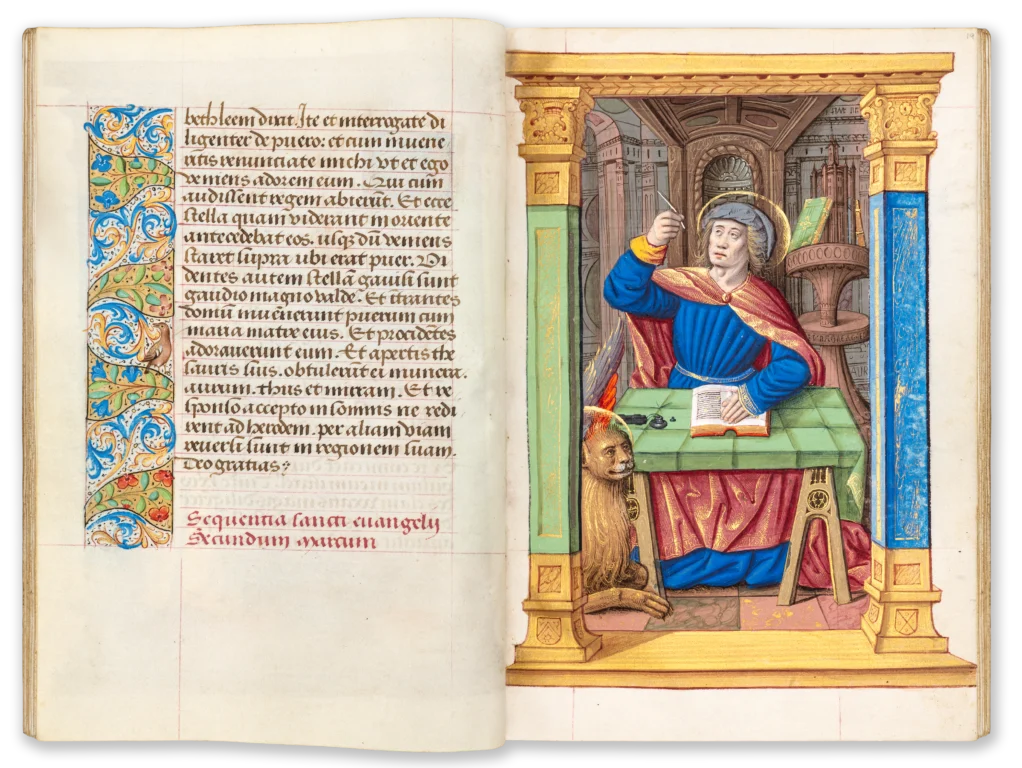 bethleem dixit. Ite et interrogate di
ligenter de puero: et cum inuene
ritis renunciate michi vt et ego
veniens adorem eum. Qui cum
audissent regem abierut. Et ecce
stella quam viderant in oriente
antecedebat eos. usqȝ dū veniens
staret supra vbi erat puer. Vi
dentes autem stellā gauisi sunt
gaudio magno valde. Et ītrantes
domū inuenerunt puerum cum
maria matre eius. Et procidētes
adorauerunt eum. Et apertis the
sauris suis. obtulerūt ei munera.
aurum. thus et mirram. Et re
sponso accepto in somnis ne redi
rent ad herodem. per aliam viam
reuersi sunt in regionem suam.
Deo gratias
Sequentia sancti euangelij
Secundum marcum